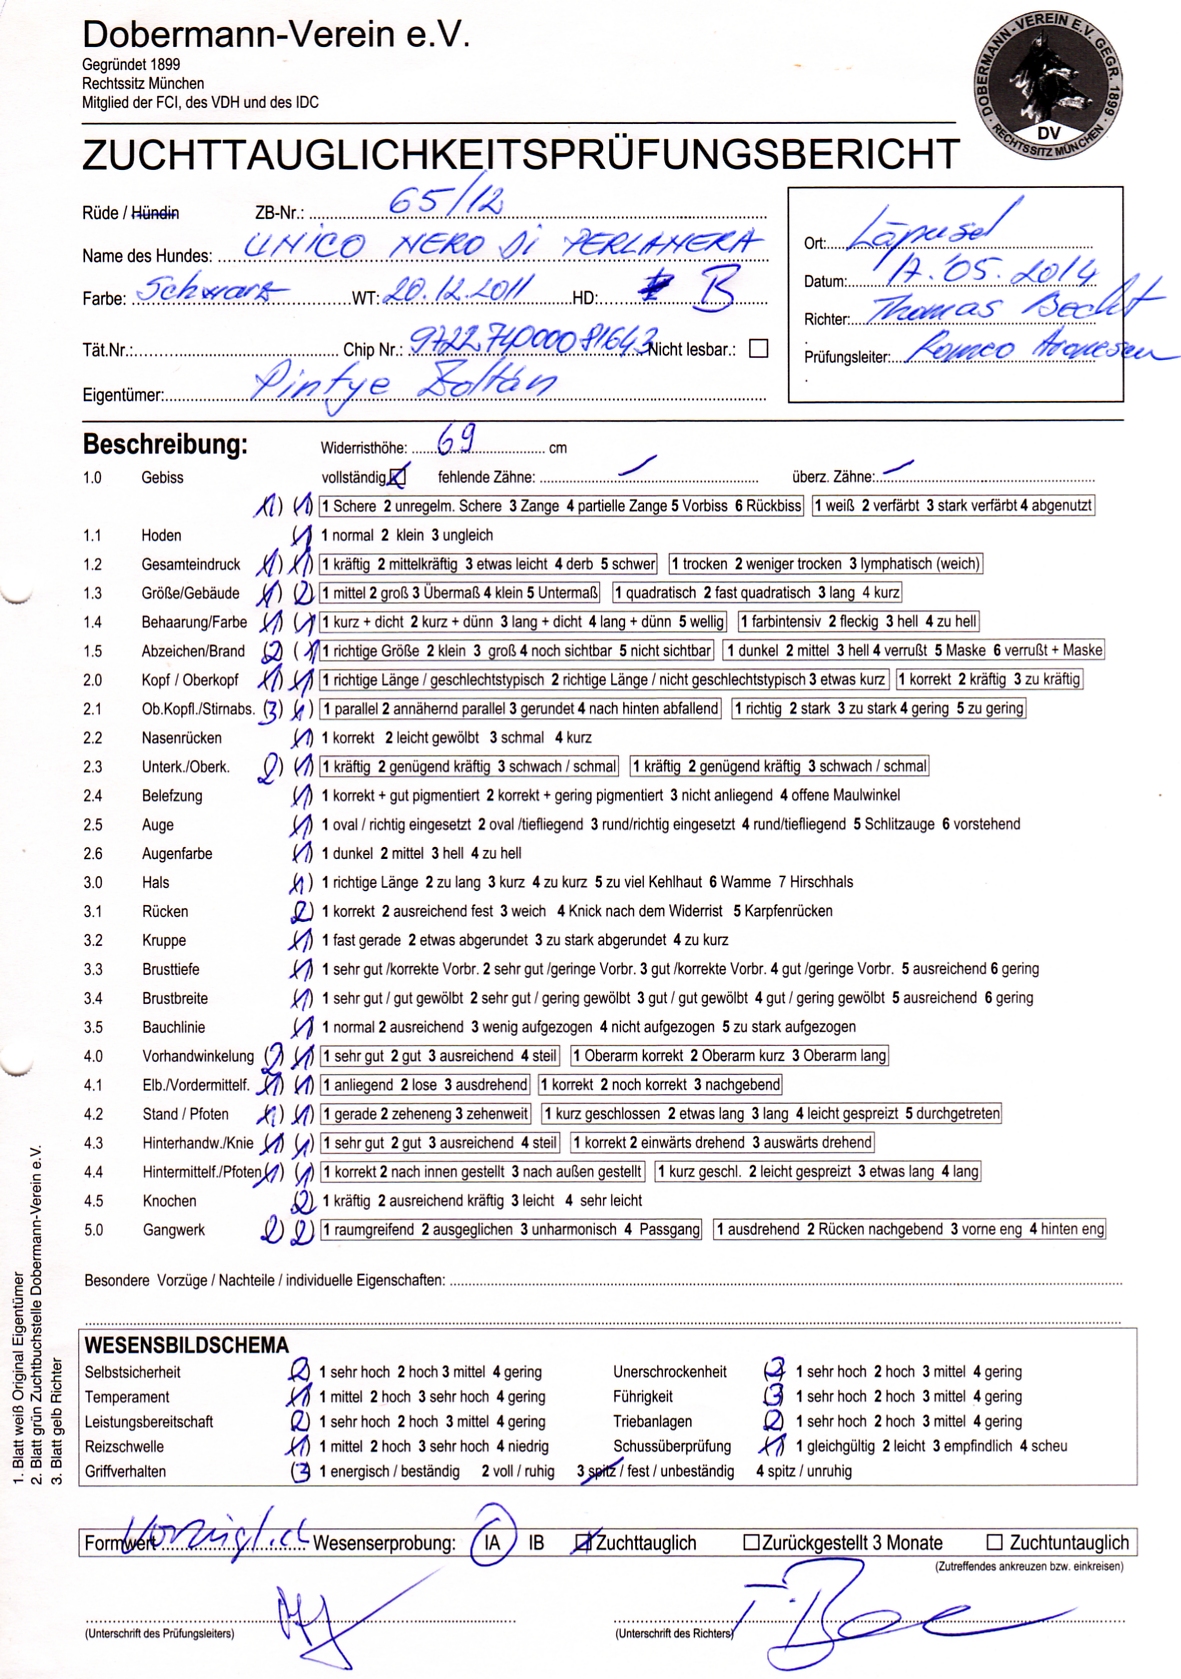 Dobermann-Verein e.V.
Gegründet 1899
Rechtssitz München
Mitglied der FCI, des VDH und des IDC
DOBERMANN-VEREIN E.V. GEGR. 1899 · RECHTSSITZ MÜNCHEN ·
DV
ZUCHTTAUGLICHKEITSPRÜFUNGSBERICHT
Rüde / Hündin ZB-Nr.: 65/12
Name des Hundes: UNICO NERO Di PERLANERA
Farbe: Schwarz WT: 20.12.2011 HD: B
Tät.Nr.: Chip Nr.: 972274000081643 Nicht lesbar.:
Eigentümer: Pintye Zoltán
Ort:
Datum: 17.05.2014
Richter: Thomas Becht
Prüfungsleiter: Romeo
Beschreibung: Widerristhöhe: 69 cm
1.0 Gebiss vollständig fehlende Zähne: überz. Zähne:
1) (1) 1 Schere 2 unregelm. Schere 3 Zange 4 partielle Zange 5 Vorbiss 6 Rückbiss 1 weiß 2 verfärbt 3 stark verfärbt 4 abgenutzt
1.1 Hoden (1) 1 normal 2 klein 3 ungleich
1.2 Gesamteindruck (1) (1) 1 kräftig 2 mittelkräftig 3 etwas leicht 4 derb 5 schwer 1 trocken 2 weniger trocken 3 lymphatisch (weich)
1.3 Größe/Gebäude (1) (2) 1 mittel 2 groß 3 Übermaß 4 klein 5 Untermaß 1 quadratisch 2 fast quadratisch 3 lang 4 kurz
1.4 Behaarung/Farbe (1) (1) 1 kurz + dicht 2 kurz + dünn 3 lang + dicht 4 lang + dünn 5 wellig 1 farbintensiv 2 fleckig 3 hell 4 zu hell
1.5 Abzeichen/Brand (2) (1) 1 richtige Größe 2 klein 3 groß 4 noch sichtbar 5 nicht sichtbar 1 dunkel 2 mittel 3 hell 4 verrußt 5 Maske 6 verrußt + Maske
2.0 Kopf / Oberkopf (1) (1) 1 richtige Länge / geschlechtstypisch 2 richtige Länge / nicht geschlechtstypisch 3 etwas kurz 1 korrekt 2 kräftig 3 zu kräftig
2.1 Ob.Kopfl./Stirnabs. (3) (1) 1 parallel 2 annähernd parallel 3 gerundet 4 nach hinten abfallend 1 richtig 2 stark 3 zu stark 4 gering 5 zu gering
2.2 Nasenrücken (1) 1 korrekt 2 leicht gewölbt 3 schmal 4 kurz
2.3 Unterk./Oberk. (2) (1) 1 kräftig 2 genügend kräftig 3 schwach / schmal 1 kräftig 2 genügend kräftig 3 schwach / schmal
2.4 Belefzung (1) 1 korrekt + gut pigmentiert 2 korrekt + gering pigmentiert 3 nicht anliegend 4 offene Maulwinkel
2.5 Auge (1) 1 oval / richtig eingesetzt 2 oval /tiefliegend 3 rund/richtig eingesetzt 4 rund/tiefliegend 5 Schlitzauge 6 vorstehend
2.6 Augenfarbe (1) 1 dunkel 2 mittel 3 hell 4 zu hell
3.0 Hals (1) 1 richtige Länge 2 zu lang 3 kurz 4 zu kurz 5 zu viel Kehlhaut 6 Wamme 7 Hirschhals
3.1 Rücken (2) 1 korrekt 2 ausreichend fest 3 weich 4 Knick nach dem Widerrist 5 Karpfenrücken
3.2 Kruppe (1) 1 fast gerade 2 etwas abgerundet 3 zu stark abgerundet 4 zu kurz
3.3 Brusttiefe (1) 1 sehr gut /korrekte Vorbr. 2 sehr gut /geringe Vorbr. 3 gut /korrekte Vorbr. 4 gut /geringe Vorbr. 5 ausreichend 6 gering
3.4 Brustbreite (1) 1 sehr gut / gut gewölbt 2 sehr gut / gering gewölbt 3 gut / gut gewölbt 4 gut / gering gewölbt 5 ausreichend 6 gering
3.5 Bauchlinie (1) 1 normal 2 ausreichend 3 wenig aufgezogen 4 nicht aufgezogen 5 zu stark aufgezogen
4.0 Vorhandwinkelung (2) (1) 1 sehr gut 2 gut 3 ausreichend 4 steil 1 Oberarm korrekt 2 Oberarm kurz 3 Oberarm lang
4.1 Elb./Vordermittelf. (1) (1) 1 anliegend 2 lose 3 ausdrehend 1 korrekt 2 noch korrekt 3 nachgebend
4.2 Stand / Pfoten (1) (1) 1 gerade 2 zeheneng 3 zehenweit 1 kurz geschlossen 2 etwas lang 3 lang 4 leicht gespreizt 5 durchgetreten
4.3 Hinterhandw./Knie (1) (1) 1 sehr gut 2 gut 3 ausreichend 4 steil 1 korrekt 2 einwärts drehend 3 auswärts drehend
4.4 Hintermittelf./Pfoten (1) (1) 1 korrekt 2 nach innen gestellt 3 nach außen gestellt 1 kurz geschl. 2 leicht gespreizt 3 etwas lang 4 lang
4.5 Knochen (2) 1 kräftig 2 ausreichend kräftig 3 leicht 4 sehr leicht
5.0 Gangwerk (2) (2) 1 raumgreifend 2 ausgeglichen 3 unharmonisch 4 Passgang 1 ausdrehend 2 Rücken nachgebend 3 vorne eng 4 hinten eng
Besondere Vorzüge / Nachteile / individuelle Eigenschaften:
WESENSBILDSCHEMA
Selbstsicherheit (2) 1 sehr hoch 2 hoch 3 mittel 4 gering Unerschrockenheit (2) 1 sehr hoch 2 hoch 3 mittel 4 gering
Temperament (1) 1 mittel 2 hoch 3 sehr hoch 4 gering Führigkeit (3) 1 sehr hoch 2 hoch 3 mittel 4 gering
Leistungsbereitschaft (2) 1 sehr hoch 2 hoch 3 mittel 4 gering Triebanlagen (2) 1 sehr hoch 2 hoch 3 mittel 4 gering
Reizschwelle (1) 1 mittel 2 hoch 3 sehr hoch 4 niedrig Schussüberprüfung (1) 1 gleichgültig 2 leicht 3 empfindlich 4 scheu
Griffverhalten (3) 1 energisch / beständig 2 voll / ruhig 3 spitz / fest / unbeständig 4 spitz / unruhig
Formwert Vorzüglich Wesenserprobung: IA IB Zuchttauglich Zurückgestellt 3 Monate Zuchtuntauglich
(Zutreffendes ankreuzen bzw. einkreisen)
(Unterschrift des Prüfungsleiters) (Unterschrift des Richters)
1. Blatt weiß Original Eigentümer
2. Blatt grün Zuchtbuchstelle Dobermann-Verein e.V.
3. Blatt gelb Richter